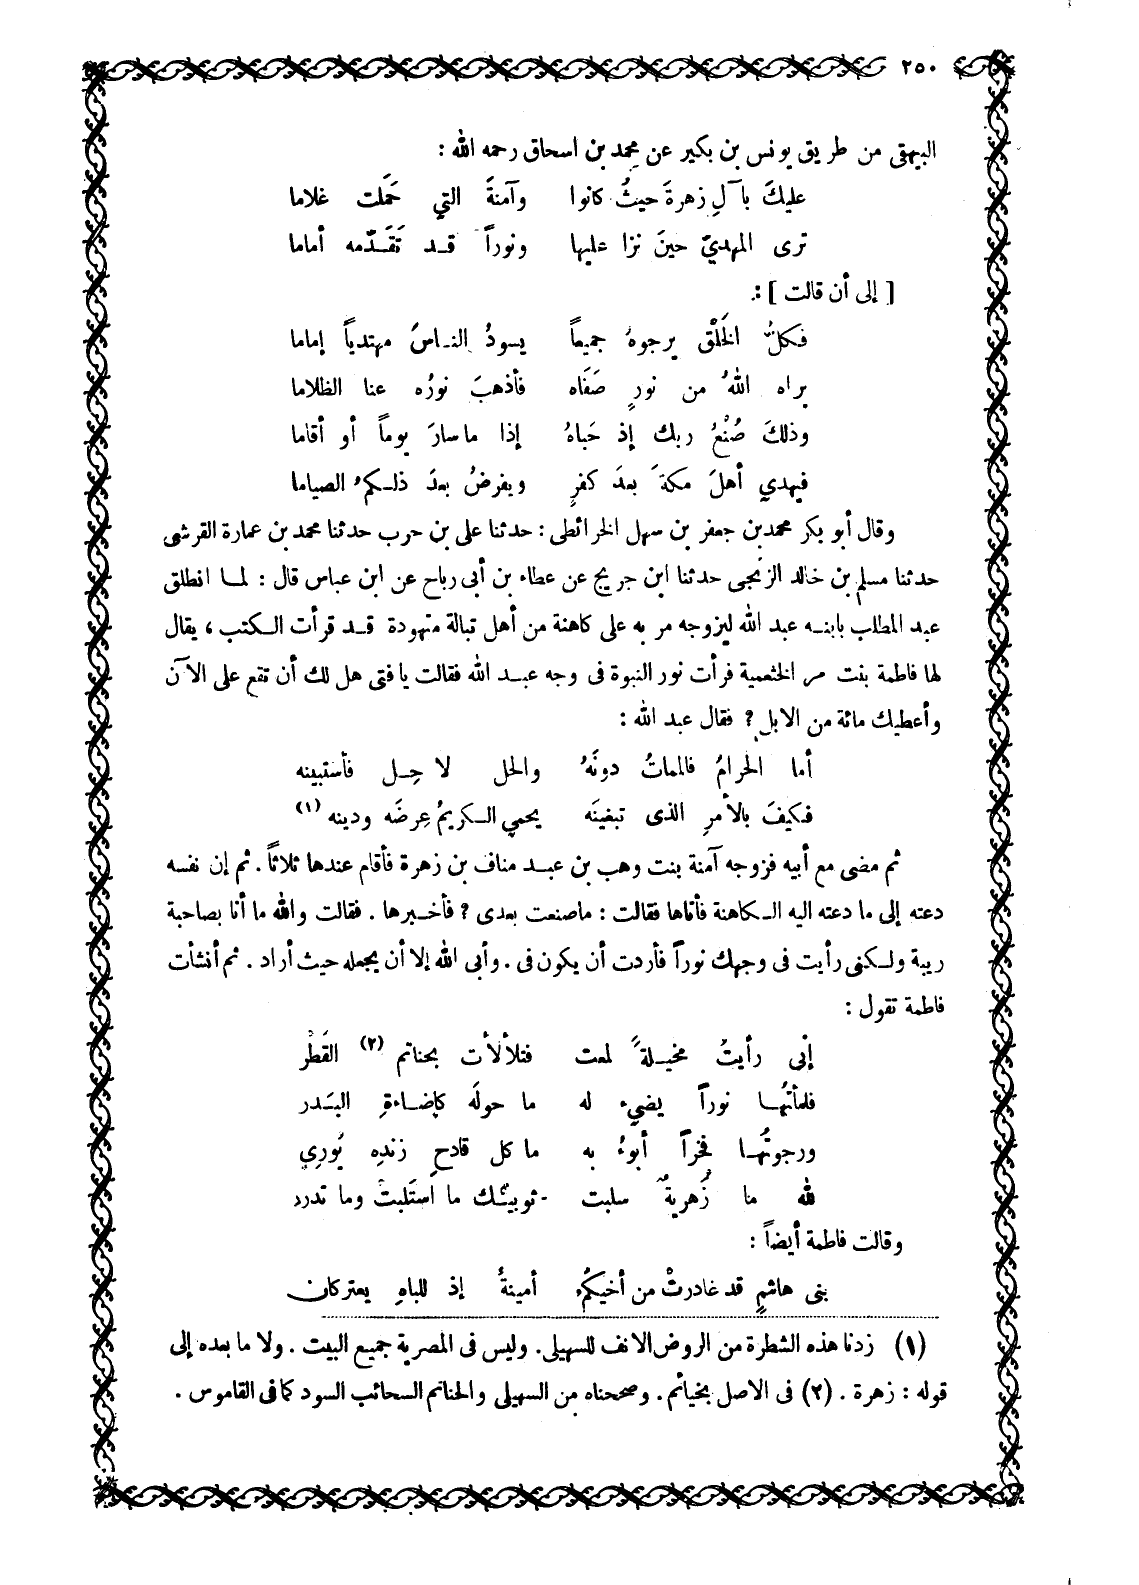 ٢٥٠
البيهقى من طريق يونس بن بكير عن محمد بن اسحاق رحمه الله :
عليكَ بآلِ زهرةَ حيثُ كانوا وآمنةَ التي حَمَلت غلاما
ترى المهديّ حينَ نزا عليها ونوراً قد تَقَدّمه أماما
[ إلى أن قالت ] :
فكلُّ الخَلْق يرجوهُ جميعاً يسودُ الناسَ مهتدياً إماما
براه اللهُ من نورٍ صَفَاه فأذهبَ نورُه عنا الظلاما
وذلكَ صُنْعُ ربك إذ حَباهُ إذا ما سارَ يوماً أو أقاما
فيهدي أهلَ مكةَ بعدَ كفرٍ ويفرضُ بعدَ ذلكمُ الصياما
وقال أبو بكر محمد بن جعفر بن سهل الخرائطى : حدثنا على بن حرب حدثنا محمد بن عمارة القرشى
حدثنا مسلم بن خالد الزنجى حدثنا ابن جريج عن عطاء بن أبى رباح عن ابن عباس قال : لما انطلق
عبد المطلب بابنه عبد الله ليزوجه مر به على كاهنة من أهل تبالة متهودة قد قرأت الكتب ، يقال
لها فاطمة بنت مر الخثعمية فرأت نور النبوة فى وجه عبد الله فقالت يا فتى هل لك أن تقع على الآن
وأعطيك مائة من الابل ? فقال عبد الله :
أما الحرامُ فالمماتُ دونَهُ والحل لا حِل فأستبينه
فكيفَ بالأمرِ الذى تبغينَه يحمي الكريمُ عِرضَه ودينه (١)
ثم مضى مع أبيه فزوجه آمنة بنت وهب بن عبد مناف بن زهرة فأقام عندها ثلاثاً . ثم إن نفسه
دعته إلى ما دعته اليه الكاهنة فأتاها فقالت : ماصنعت بعدى ? فأخبرها . فقالت والله ما أنا بصاحبة
ريبة ولكنى رأيت فى وجهك نوراً فأردت أن يكون فى . وأبى الله إلا أن يجعله حيث أراد . ثم أنشأت
فاطمة تقول :
إنى رأيتُ مخيلةً لمعت فتلألأت بحناتم (٢) القَطْر
فلمأتُها نوراً يضيء له ما حولَه كإضاءةِ البَدر
ورجوتُها فخراً أبوءُ به ما كل قادحِ زندِه يُورِي
لله ما زُهريةٌ سلبت ثوبيْك ما استَلبتْ وما تدرى
وقالت فاطمة أيضاً :
بنى هاشمٍ قد غادرتْ من أخيكمُ أمينةُ إذ للباهِ يعتركان
(١) زدنا هذه الشطرة من الروض الانف للسهيلى. وليس فى المصرية جميع البيت . ولا ما بعده إلى
قوله : زهرة . (٢) فى الاصل بخياتم . وصححناه من السهيلى والحناتم السحائب السود كما فى القاموس .